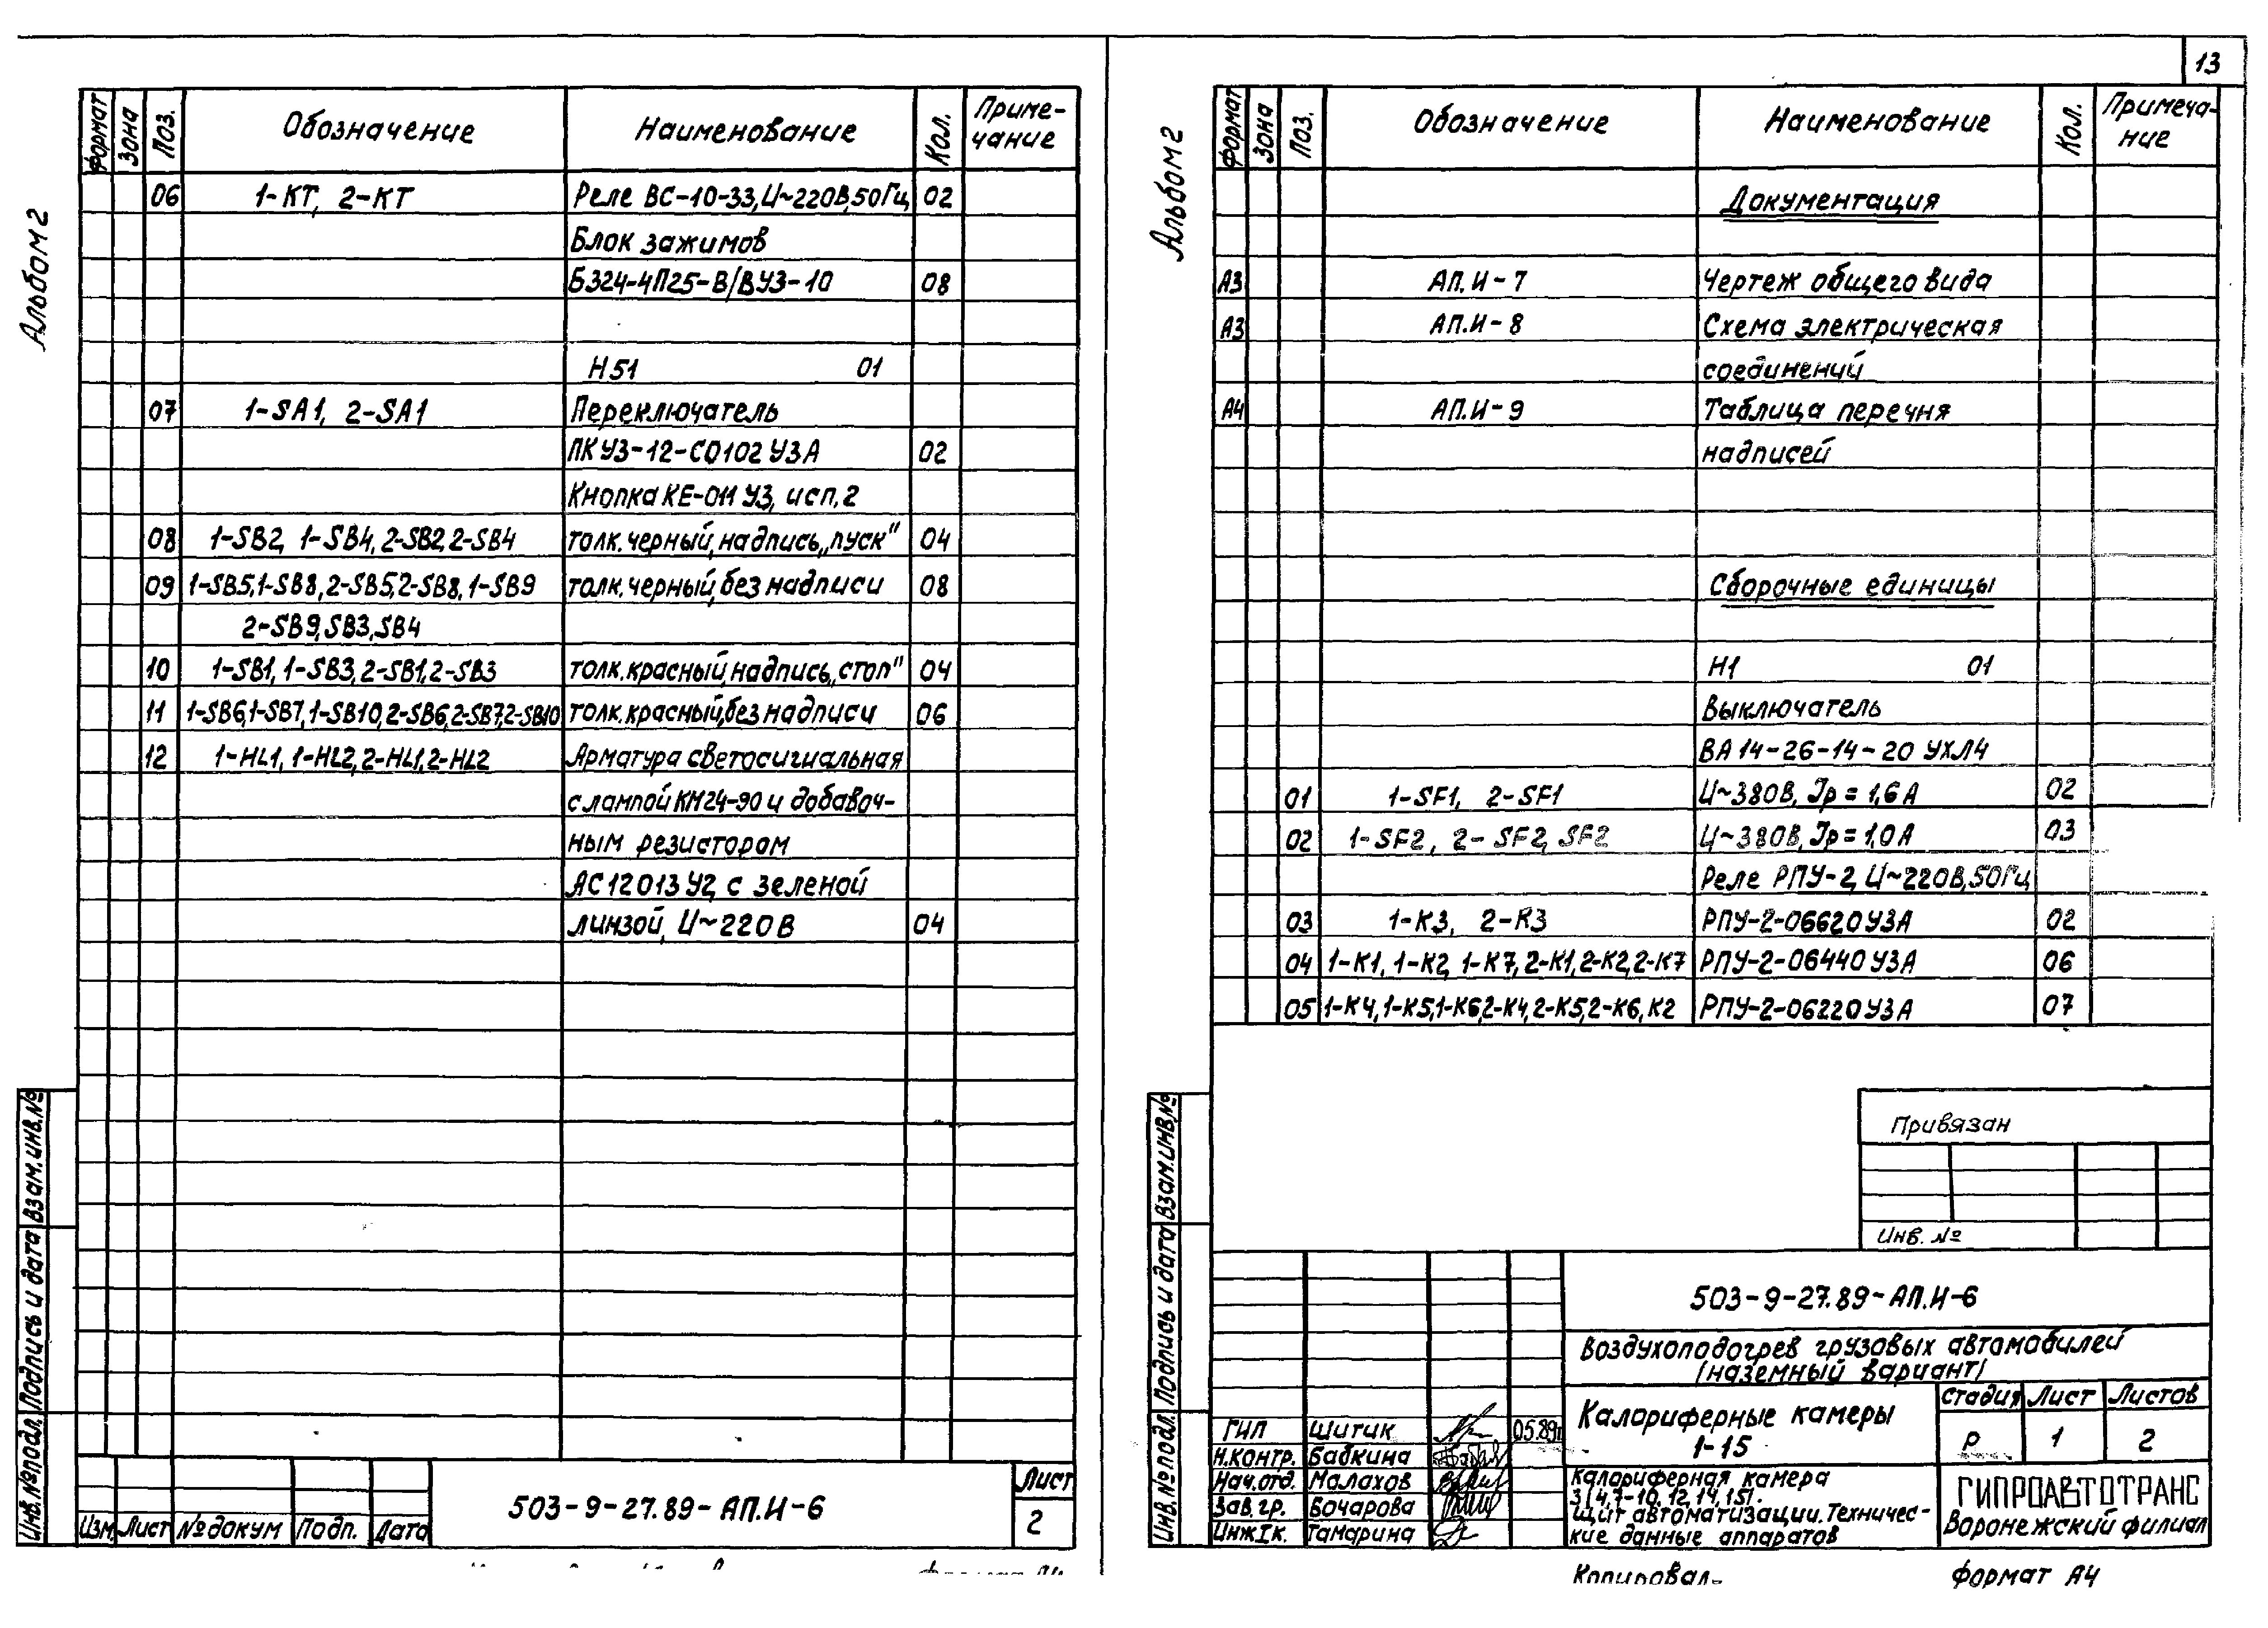 Альбом 2
Формат Зона Поз. Обозначение Наименование Кол. Приме-
чание
06 1-КТ, 2-КТ Реле ВС-10-33, U~220В, 50Гц 02
Блок зажимов
БЗ24-4П25-В/ВУЗ-10 08
Н51 01
07 1-SA1, 2-SA1 Переключатель
ПКУ3-12-С0102 У3А 02
Кнопка КЕ-011 У3, исп. 2
08 1-SB2, 1-SB4, 2-SB2, 2-SB4 толк. черный, надпись „пуск" 04
09 1-SB5, 1-SB8, 2-SB5, 2-SB8, 1-SB9 толк. черный, без надписи 08
2-SB9, SB3, SB4
10 1-SB1, 1-SB3, 2-SB1, 2-SB3 толк. красный, надпись „стоп" 04
11 1-SB6, 1-SB7, 1-SB10, 2-SB6, 2-SB7, 2-SB10 толк. красный, без надписи 06
12 1-HL1, 1-HL2, 2-HL1, 2-HL2 Арматура светосигнальная
с лампой КМ24-90 и добавоч-
ным резистором
АС12013У2, с зеленой
линзой, U~220В 04
Инв.№подл. Подпись и дата Взам.инв.№
Изм. Лист №докум Подп. Дата
503-9-27.89-АП.И-6
Лист
2
13
Альбом 2
Формат Зона Поз. Обозначение Наименование Кол. Примеча-
ние
Документация
А3 АП.И-7 Чертеж общего вида
А3 АП.И-8 Схема электрическая
соединений
А4 АП.И-9 Таблица перечня
надписей
Сборочные единицы
Н1 01
Выключатель
ВА14-26-14-20 УХЛ4
01 1-SF1, 2-SF1 U~380В, Iр=1,6А 02
02 1-SF2, 2-SF2, SF2 U~380В, Iр=1,0А 03
Реле РПУ-2, U~220В, 50Гц
03 1-К3, 2-К3 РПУ-2-06620У3А 02
04 1-К1, 1-К2, 1-К7, 2-К1, 2-К2, 2-К7 РПУ-2-06440У3А 06
05 1-К4, 1-К5, 1-К6, 2-К4, 2-К5, 2-К6, К2 РПУ-2-06220У3А 07
Привязан
Инв. №
Инв.№подл. Подпись и дата Взам.инв.№
503-9-27.89-АП.И-6
Воздухоподогрев грузовых автомобилей
/наземный вариант/
Калориферные камеры
1-15
Стадия Лист Листов
Р 1 2
ГИП Шитик 05.89г
Н.контр. Бабкина
Нач.отд. Малахов
Зав.гр. Бочарова
Инж.Iк. Тамарина
Калориферная камера
3/4,7-10,12,14,15/.
Щит автоматизации. Техничес-
кие данные аппаратов
ГИПРОАВТОТРАНС
Воронежский филиал
Копировал-
Формат А4